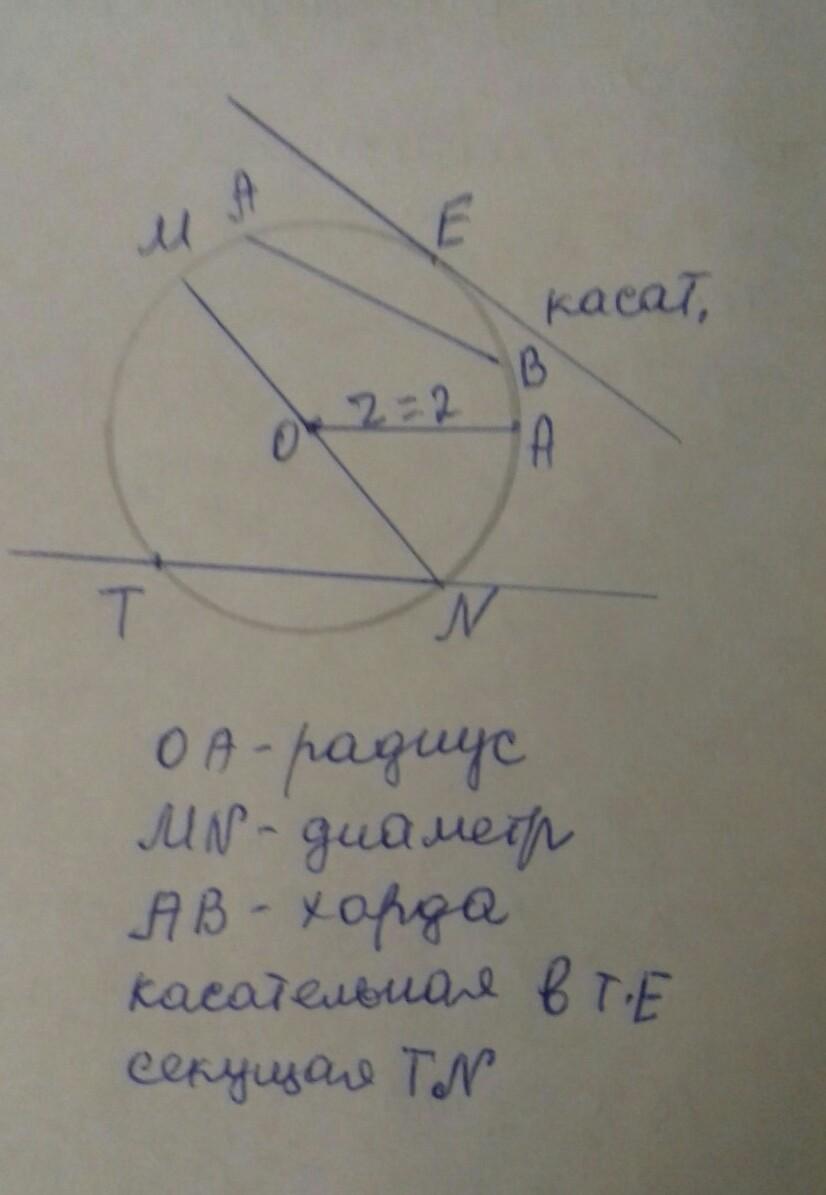 А
М
Е
касат.
В
r=2
О
А
Т
N
ОА - радиус
MN - диаметр
АВ - хорда
касательная в т.Е
секущая TN